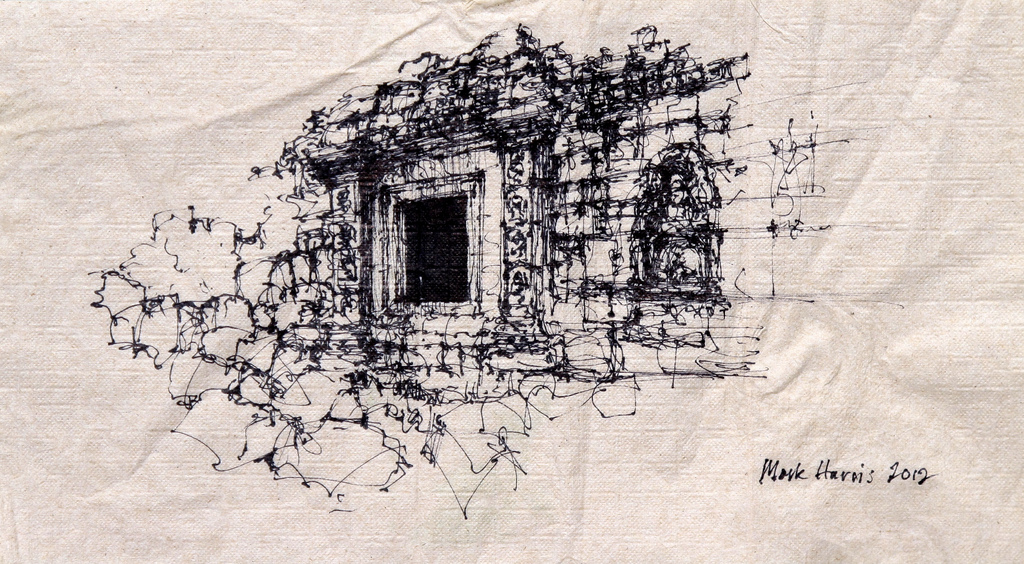 Mark Harris 2012